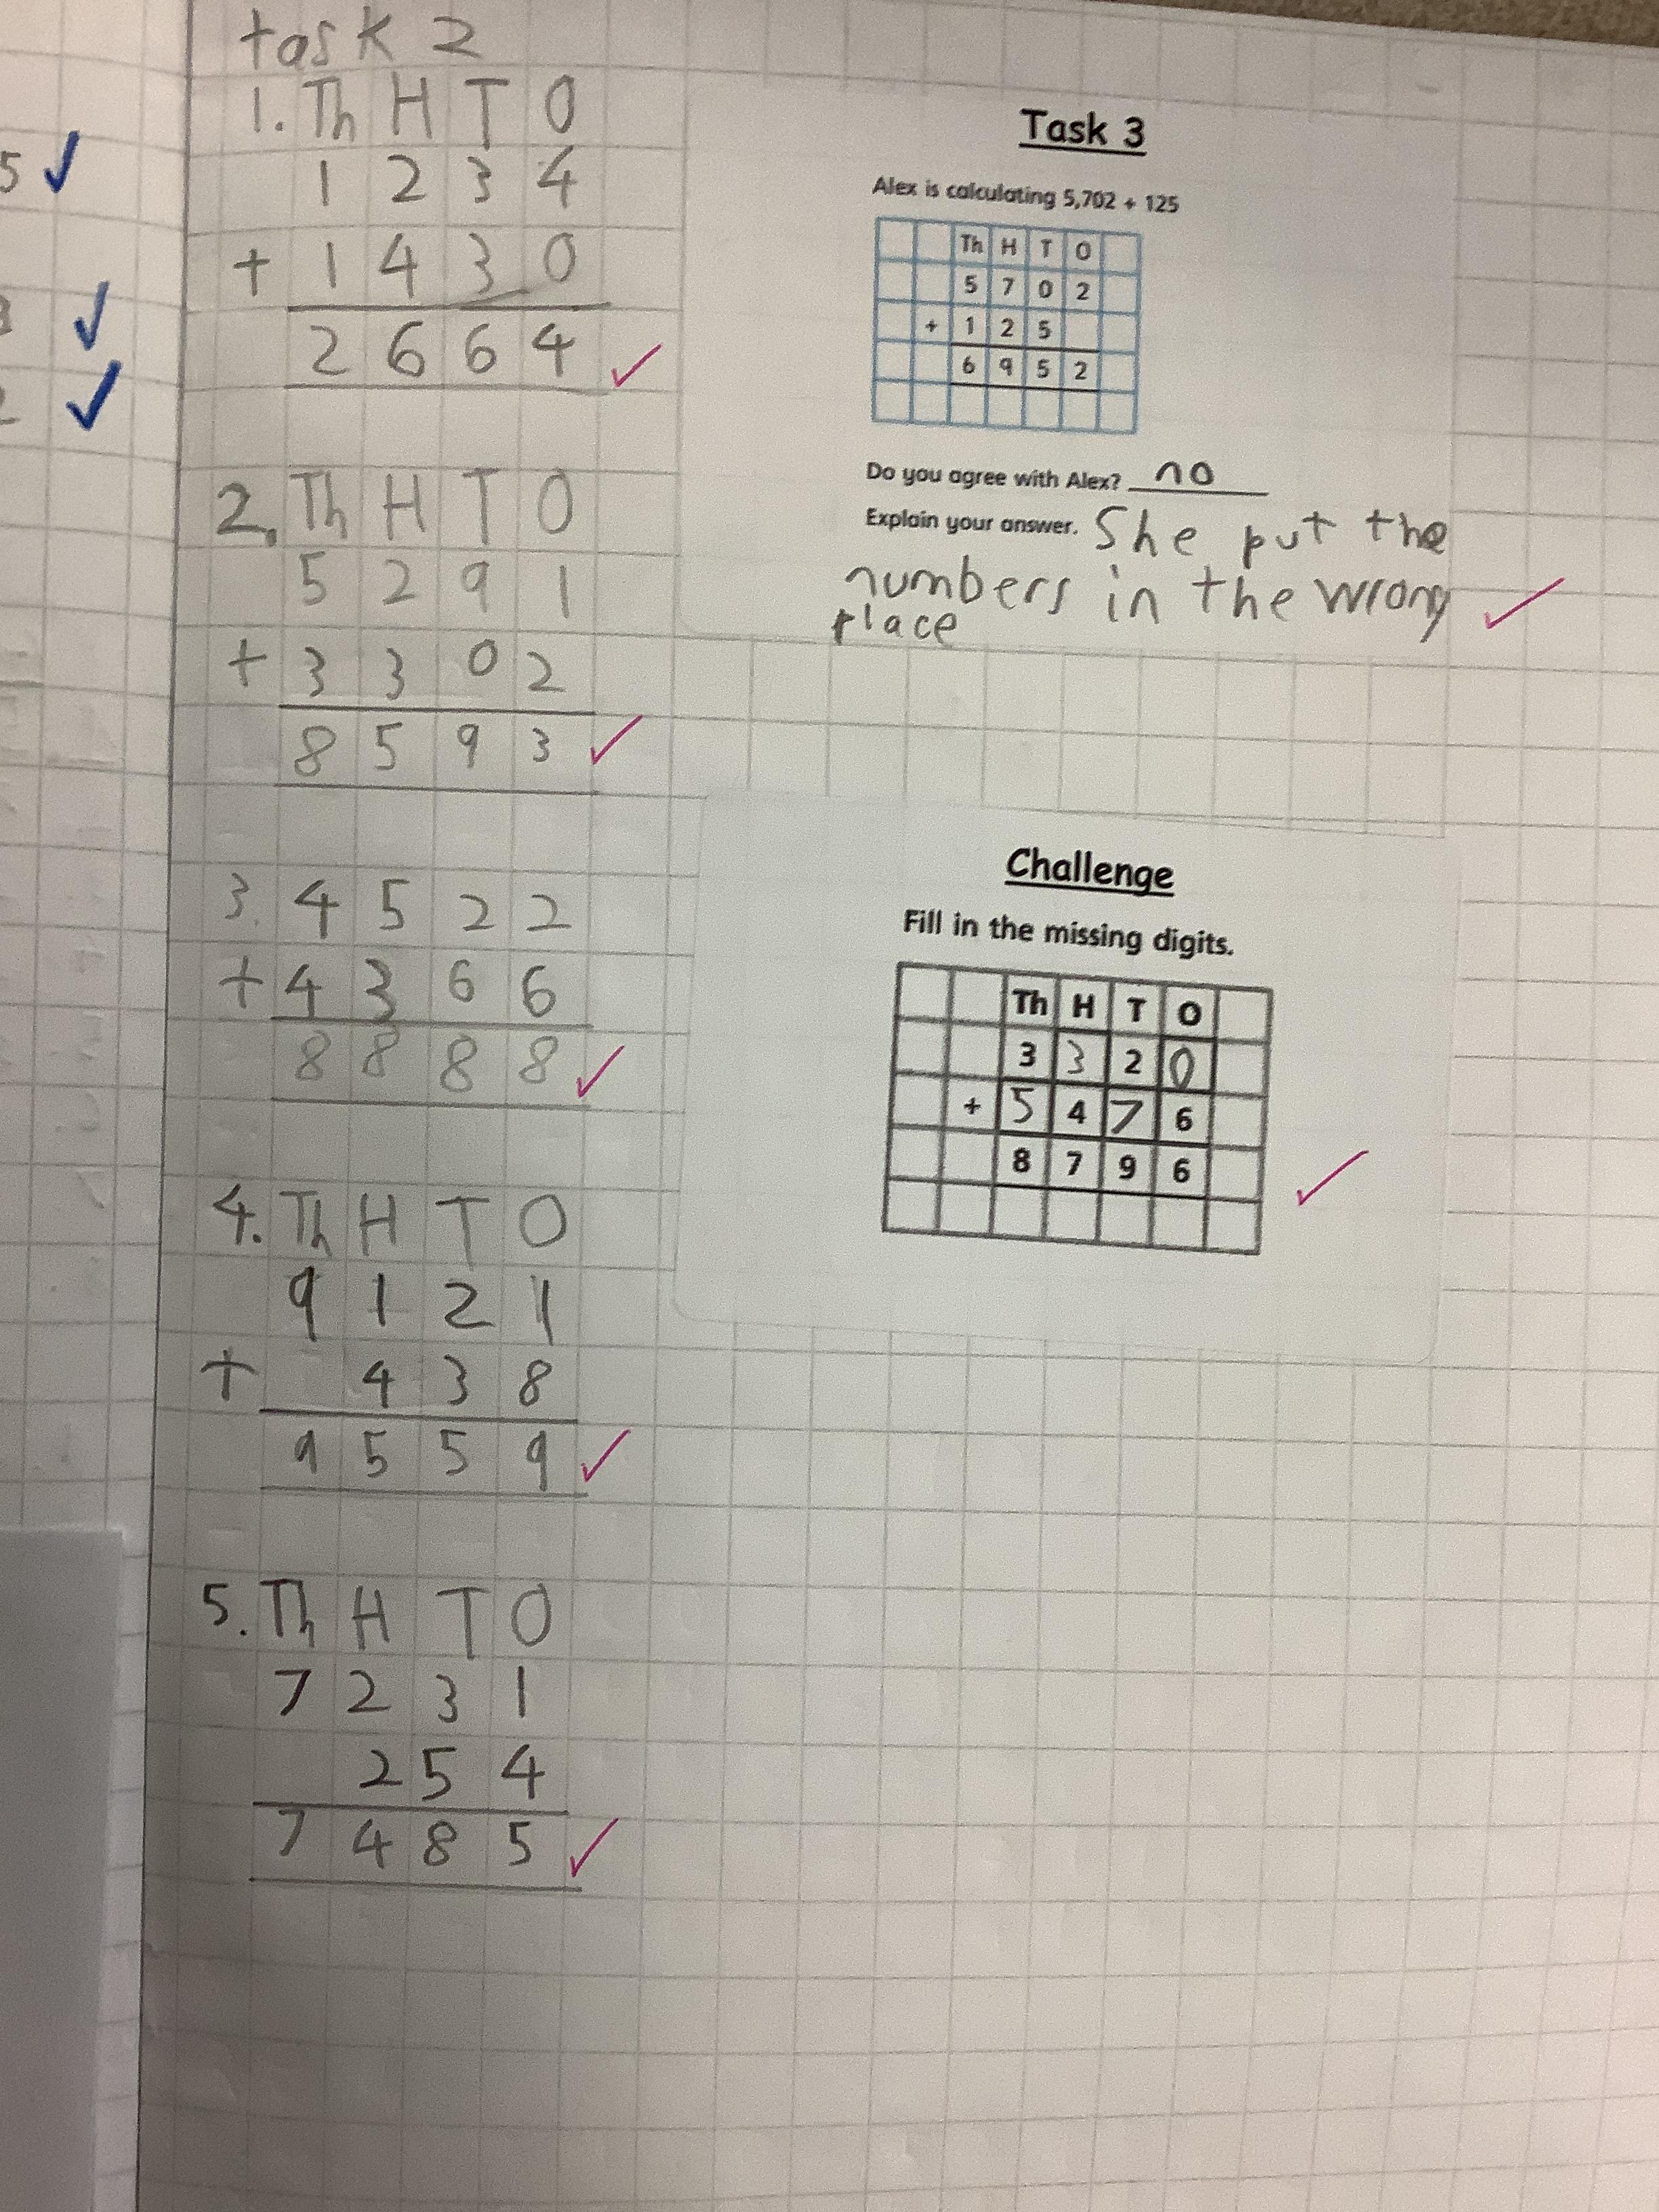 5
task 2
1. Th H T O
1 2 3 4
+ 1 4 3 0
2 6 6 4
2. Th H T O
5 2 9 1
+ 3 3 0 2
8 5 9 3
3. 4 5 2 2
+ 4 3 6 6
8 8 8 8
4. Th H T O
9 1 2 1
+ 4 3 8
9 5 5 9
5. Th H T O
7 2 3 1
2 5 4
7 4 8 5
Task 3
Alex is calculating 5,702 + 125
Th H T O
5 7 0 2
+ 1 2 5
6 9 5 2
Do you agree with Alex? no
Explain your answer. She put the
numbers in the wrong
place
Challenge
Fill in the missing digits.
Th H T O
3 3 2 0
+ 5 4 7 6
8 7 9 6